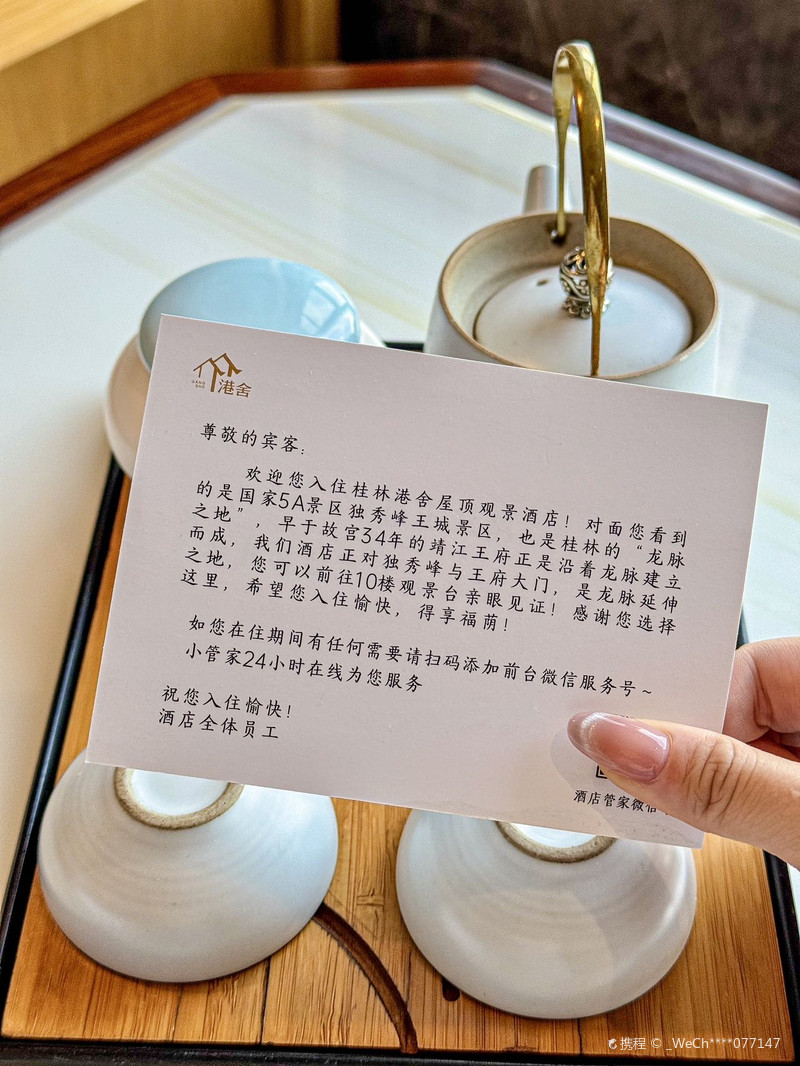 GANG
SHE
港舍
尊敬的宾客:
欢迎您入住桂林港舍屋顶观景酒店！对面您看到
的是国家5A景区独秀峰王城景区，也是桂林的“龙脉
之地”，早于故宫34年的靖江王府正是沿着龙脉建立
而成，我们酒店正对独秀峰与王府大门，是龙脉延伸
之地，您可以前往10楼观景台亲眼见证！感谢您选择
这里，希望您入住愉快，得享福荫！
如您在住期间有任何需要请扫码添加前台微信服务号~
小管家24小时在线为您服务
祝您入住愉快！
酒店全体员工
酒店管家微信
携程 © _WeCh****077147